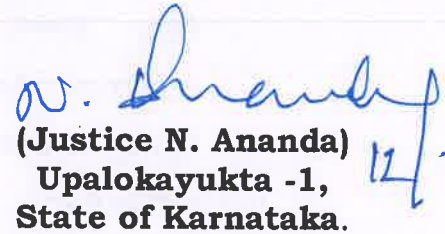 N. Ananda
(Justice N. Ananda) 12/
Upalokayukta -1,
State of Karnataka.